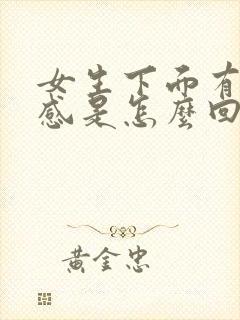 女生下而有
感是怎麼回
黃金忠